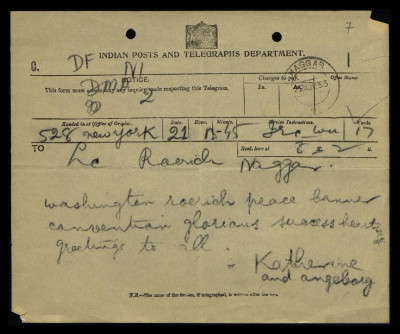 7
DF
INDIAN POSTS AND TELEGRAPHS DEPARTMENT.
G. NI
NOTICE. Charges to pay. Office Stamp.
This form must accompany any inquiry made respecting this Telegram. Rs. As.
2
NAGGAR
Handed in at (Office of Origin). Date. Hour. Minute. Service Instructions. Words.
528 newyork 21 17
TO Recd. here at
Lc Roerich Naggar.
washington roerich peace banner
convention glorious success heart
greetings to all
- Katherine
and angeborg
N.B.—The name of the Sender, if telegraphed, is written after the text.